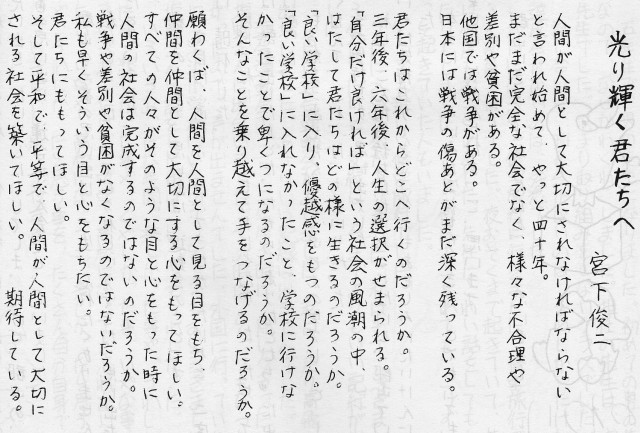 光り輝く君たちへ
宮下俊二
人間が人間として大切にされなければならない
と言われ始めて、やっと四十年。
まだまだ完全な社会でなく、様々な不合理や
差別や貧困がある。
他国では戦争がある。
日本には戦争の傷あとがまだ深く残っている。
君たちはこれからどこへ行くのだろうか。
三年後、六年後、人生の選択がせまられる。
「自分だけ良ければ」という社会の風潮の中、
はたして君たちはどの様に生きるのだろうか。
「良い学校」に入り、優越感をもつのだろうか。
「良い学校」に入れなかったこと、学校に行けな
かったことで卑くつになるのだろうか。
そんなことを乗り越えて手をつなげるのだろうか。
願わくば、人間を人間として見る目をもち、
仲間を仲間として大切にする心をもってほしい。
すべての人々がそのような目と心をもった時に
人間の社会は完成するのではないのだろうか。
戦争や差別や貧困がなくなるのではないだろうか。
私も早くそういう目と心をもちたい。
君たちにももってほしい。
そして平和で、平等で、人間が人間として大切に
される社会を築いてほしい。　期待している。